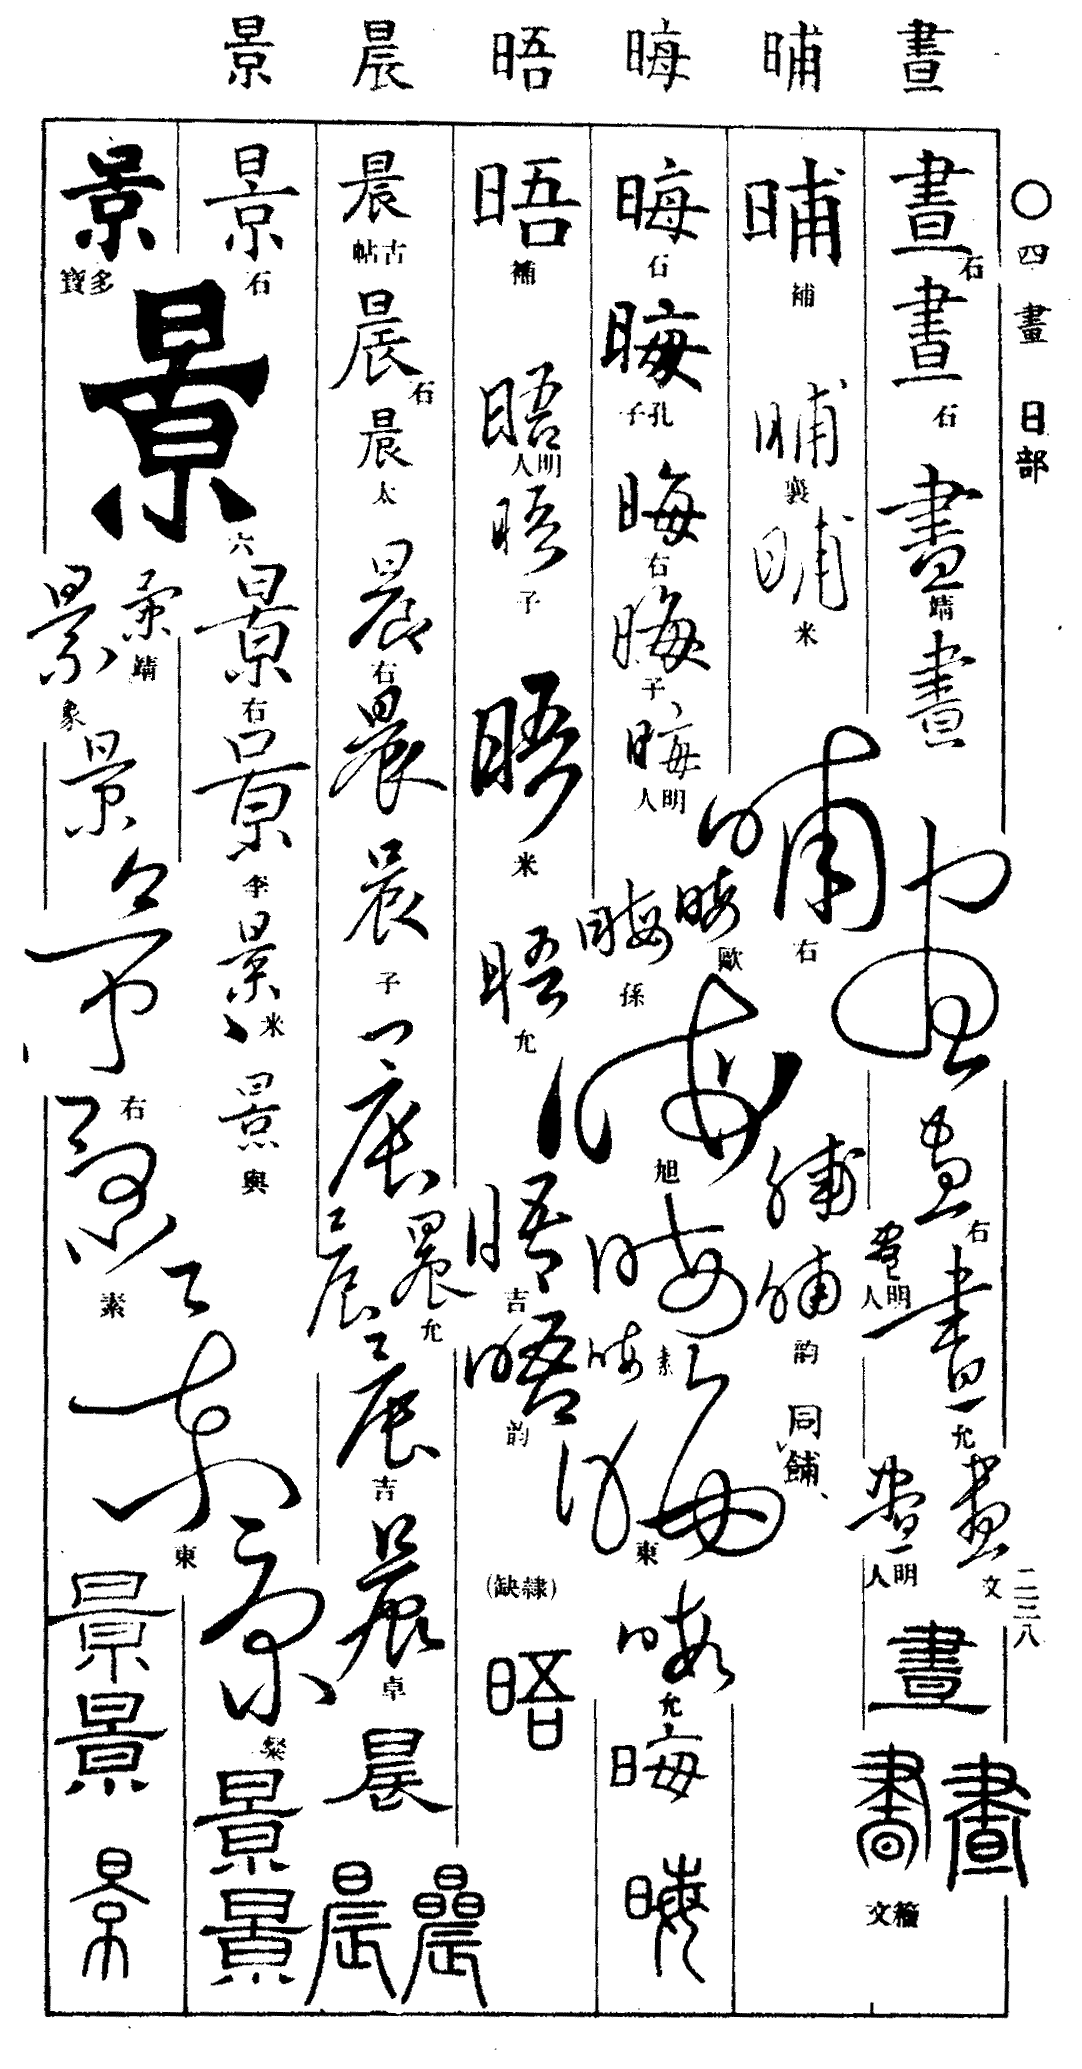 ○四畫 日部 二三八
晝 晡 晦 晤 晨 景
晝 石 晝 石 晝 靖 晝 晝 晝 右 晝 明人 晝 允 晝 文 晝 明人 晝 晝 晝 籀文
晡 補 晡 襄 晡 米 晡 右 晡 晡 韵 同餔、
晦 石 晦 孔子 晦 右 晦 子 晦 明人 晦 歐 晦 孫 晦 旭 晦 素 晦 晦 東 晦 允 晦 晦
晤 補 晤 明人 晤 子 晤 米 晤 允 晤 吉 晤 韵 (隸缺) 晤
晨 古帖 晨 石 晨 太 晨 右 晨 晨 子 晨 晨 允 晨 晨 吉 晨 卓 晨 晨 晨
景 石 景 六 景 右 景 李 景 米 景 輿 景 粲 景 景
景 多寶 景 靖 景 象 景 景 右 景 素 景 東 景 景 景